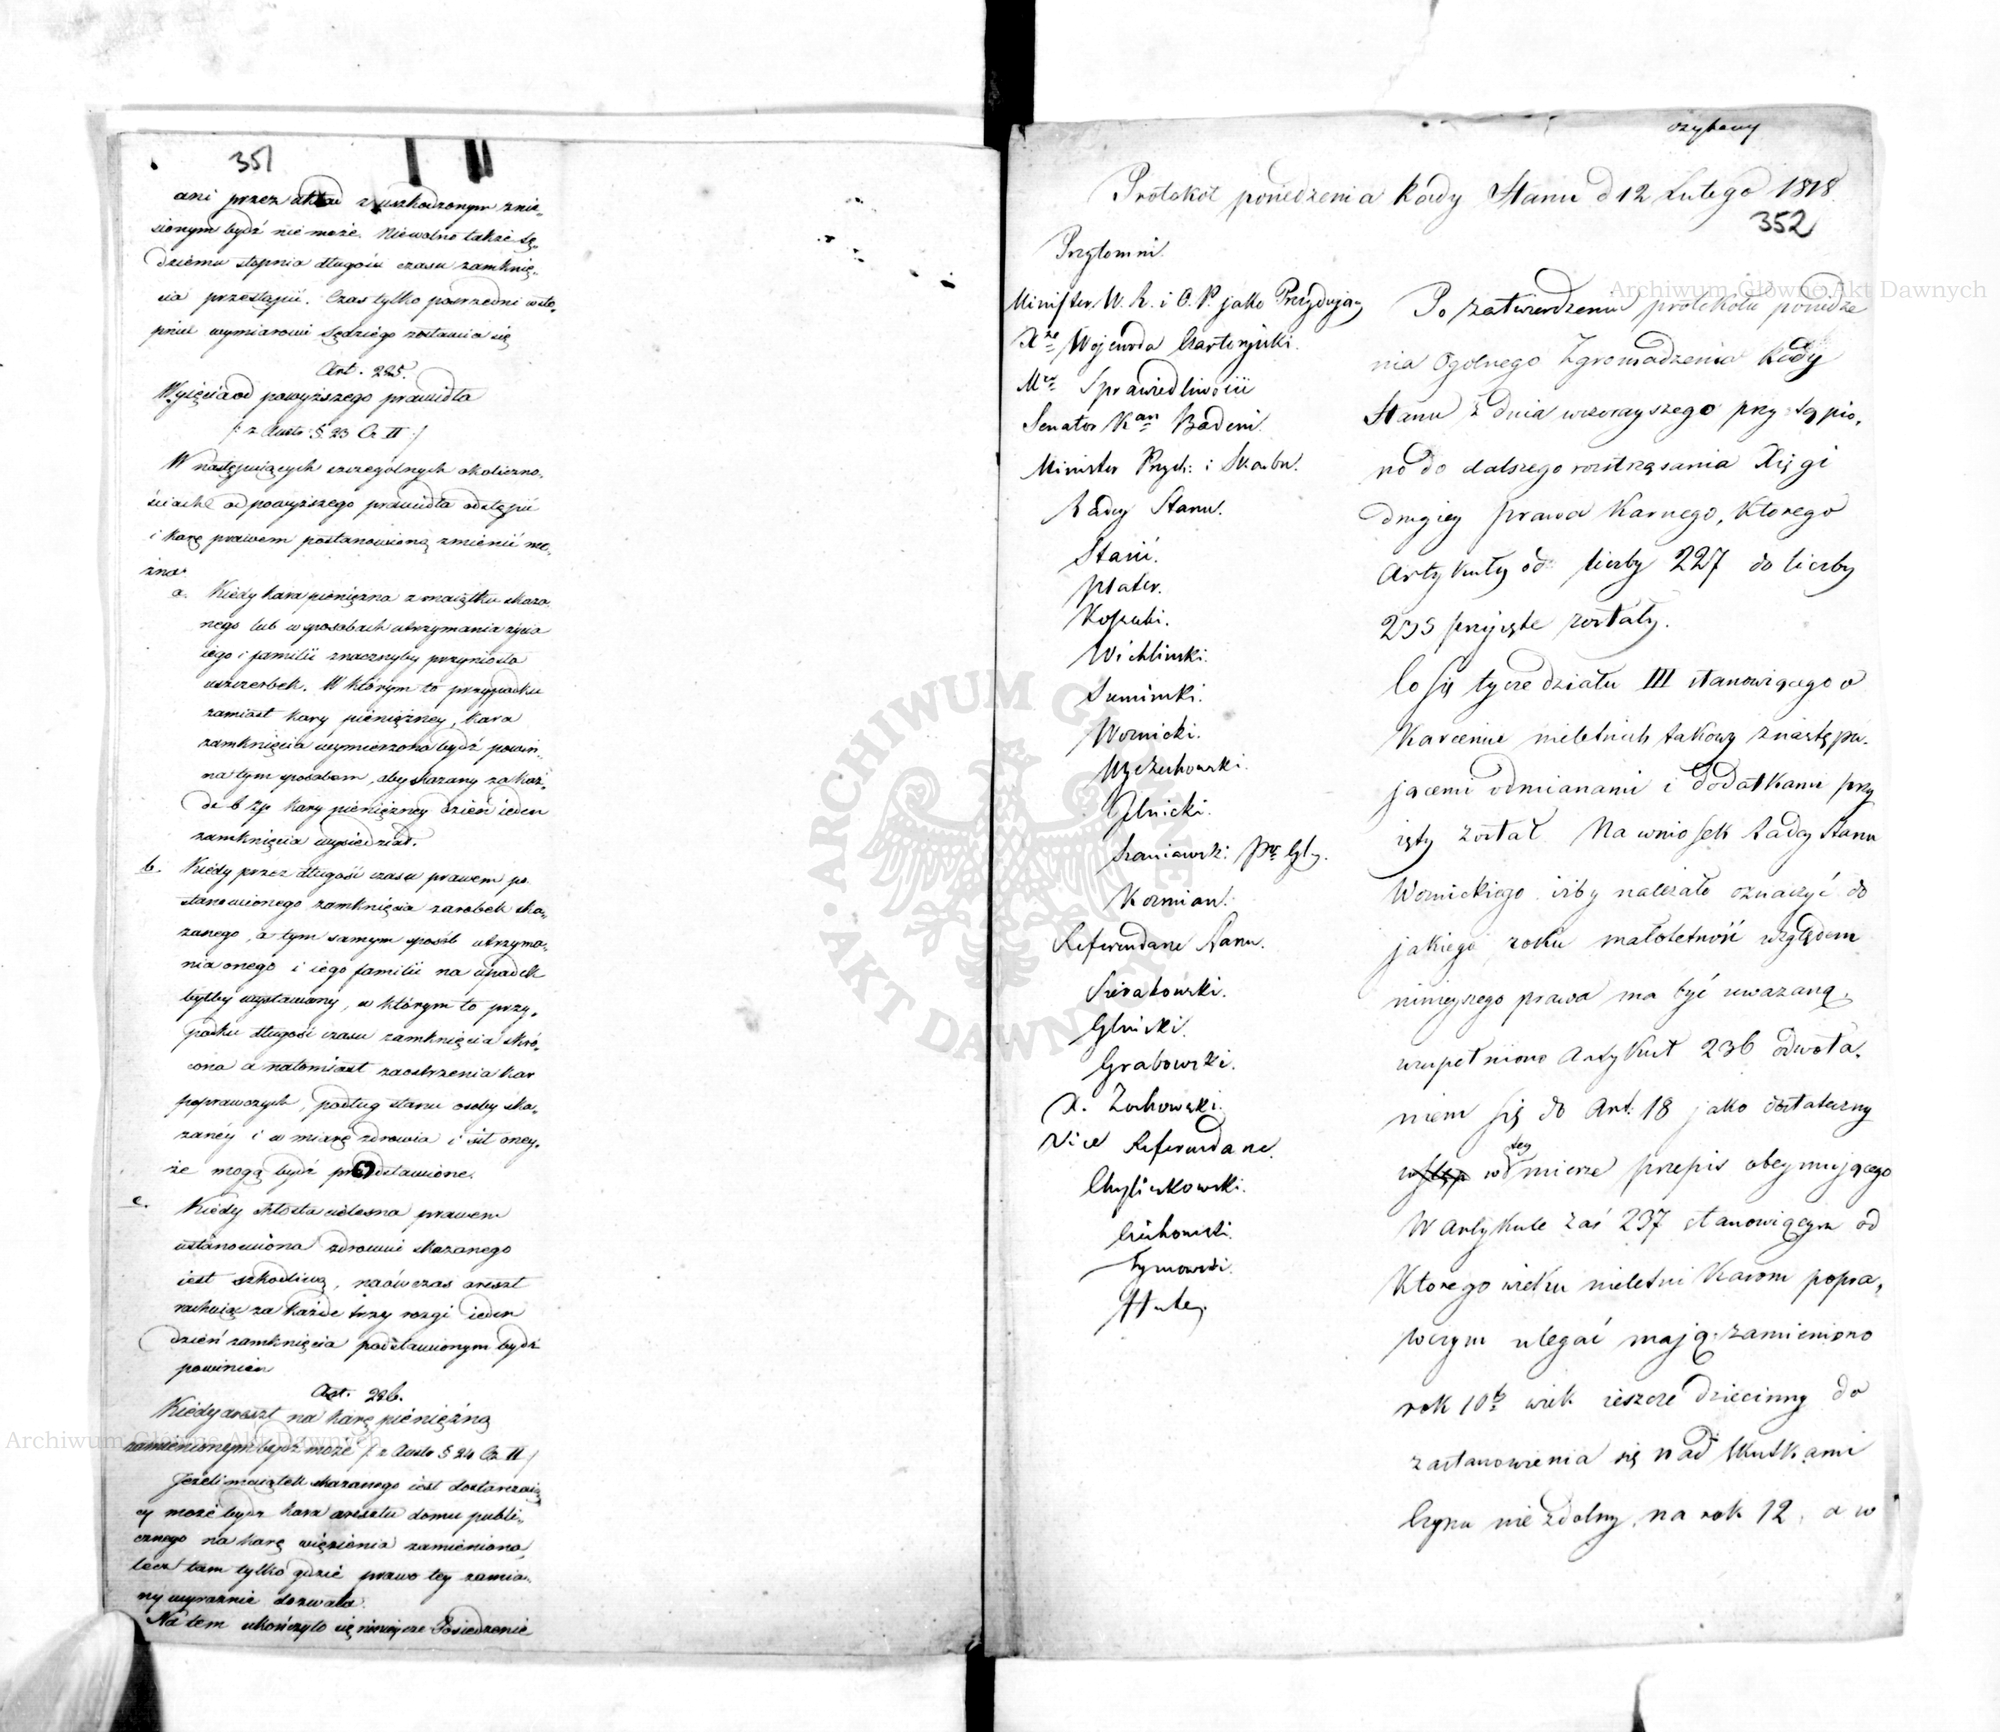 351
ani przez układ z uszkodzonym znie-
sionym bydź nie może. Niewolno także Sę-
dziemu stopnia długości czasu zamknię-
cia przestąpić. Czas tylko pośrzedni w sto-
pniu wymiarowi Sędziego zostawia się
Art. 225.
Wyięcia od powyższego prawidła
/: z Austr: § 23 Cz. II :/
W następuiących szczególnych okoliczno-
ściach od powyższego prawidła odstąpić
i karę prawem postanowioną zmienić mo-
żna
a. Kiedy kara pieniężna z maiątku skaza
nego lub w sposobach utrzymania życia
iego i familii znacznyby przyniosła
uszczerbek. W którym to przypadku
zamiast kary pieniężney, kara
zamknięcia wymierzona bydź powin-
na tym sposobem, aby skazany za każ-
de 6 zp kary pieniężney dzień ieden
zamknięcia wysiedział.
b. Kiedy przez długość czasu prawem po
stanowionego zamknięcia zarobek ska-
zanego, a tym samym sposób utrzyma-
nia onego i iego familii na upadek
byłby wystawiony, w którym to przy-
padku długość czasu zamknięcia skró-
cona a natomiast zaostrzenia kar
poprawczych, podług stanu osoby ska-
zanéy i w miarę zdrowia i sił oney,
że mogą bydź przedstawione.
c. Kiedy chłosta cielesna prawem
ustanowiona zdrowiu skazanego
iest szkodliwą, naówczas areszt
rachuiąc za każde trzy rozgi ieden
dzień zamknięcia podstawionym bydź
powinien
Art. 226.
Kiedy areszt na karę pieniężną
zamienionym bydź może /: z Austr § 24 Cz. II :/
Jeżeli maiątek skazanego iest dostarczaią
cy może bydź kara aresztu domu publi-
cznego na karę więzienia zamieniona,
lecz tam tylko gdzie prawo tey zamia-
ny wyraźnie dozwala.
Na tem ukończyło się ninieysze Posiedzenie
Protokół posiedzenia Rady Stanu d 12 Lutego 1818.
352
Przytomni.
Minister W. R. i O. P. jako Prezydujący
Xże Wojewoda Czartoryski.
Mer Sprawiedliwości
Senator Kan Badeni.
Minister Przych: i Skarbu.
Radcy Stanu.
Staszic.
Plater.
Wichlinski.
Sumiński.
Woznicki.
Wyczechowski.
Szaniawski Pr. Gly.
Kozmian.
Referendarze Stanu.
Sierakowski.
Gliński.
Grabowski.
X. Żochowski.
Vice Referendarze.
Chyliczkowski.
Cichowski.
Tymowski.
Hube.
Po zatwierdzeniu protokołu posiedze
nia Ogolnego Zgromadzenia Rady
Stanu z dnia wczorayszego przystąpio-
no do dalszego rozstrząsania Xięgi
drugiey prawa Karnego, którego
Artykuły od liczby 227 do liczby
235 przyięte zostały.
Co się tycze działu III stanowiącego o
Karceniu nieletnich takowy z następu-
jącemi odmianami i dodatkami przy
ięty został. Na wniosek Radcy Stanu
Woznickiego iżby należało oznaczyć do
jakiego roku małoletność względem
ninieyszego prawa ma być uważaną,
uzupełniono Artykuł 236 odwoła-
niem się do Art. 18 jako dostateczny
w tey mierze przepis obeymującego
W Artykule zaś 237 stanowiącym od
Ktorego wieku nieletni karom popra-
wczym ulegać mają zamieniono
rok 10ty wiek ieszcze dziecinny do
zastanowienia się nad skutkami
Czynu niezdolny, na rok 12, a w
Archiwum Główne Akt Dawnych
Archiwum Główne Akt Dawnych
ARCHIWUM GŁÓWNE AKT DAWNYCH